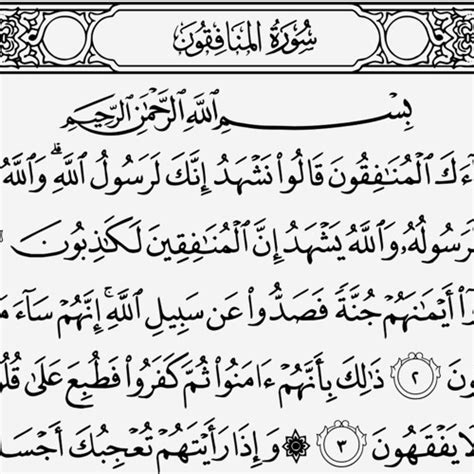 سُورَةُ المُنَافِقُونَ
بِسْمِ اللَّهِ الرَّحْمَٰنِ الرَّحِيمِ
ٱلْمُنَٰفِقُونَ قَالُوا۟ نَشْهَدُ إِنَّكَ لَرَسُولُ ٱللَّهِ ۗ وَٱللَّهُ
لَرَسُولُهُۥ وَٱللَّهُ يَشْهَدُ إِنَّ ٱلْمُنَٰفِقِينَ لَكَٰذِبُونَ
أَيْمَٰنَهُمْ جُنَّةً فَصَدُّوا۟ عَن سَبِيلِ ٱللَّهِ ۚ إِنَّهُمْ سَآءَ
٢ ذَٰلِكَ بِأَنَّهُمْ ءَامَنُوا۟ ثُمَّ كَفَرُوا۟ فَطُبِعَ عَلَىٰ
لَا يَفْقَهُونَ ٣ ۞ وَإِذَا رَأَيْتَهُمْ تُعْجِبُكَ